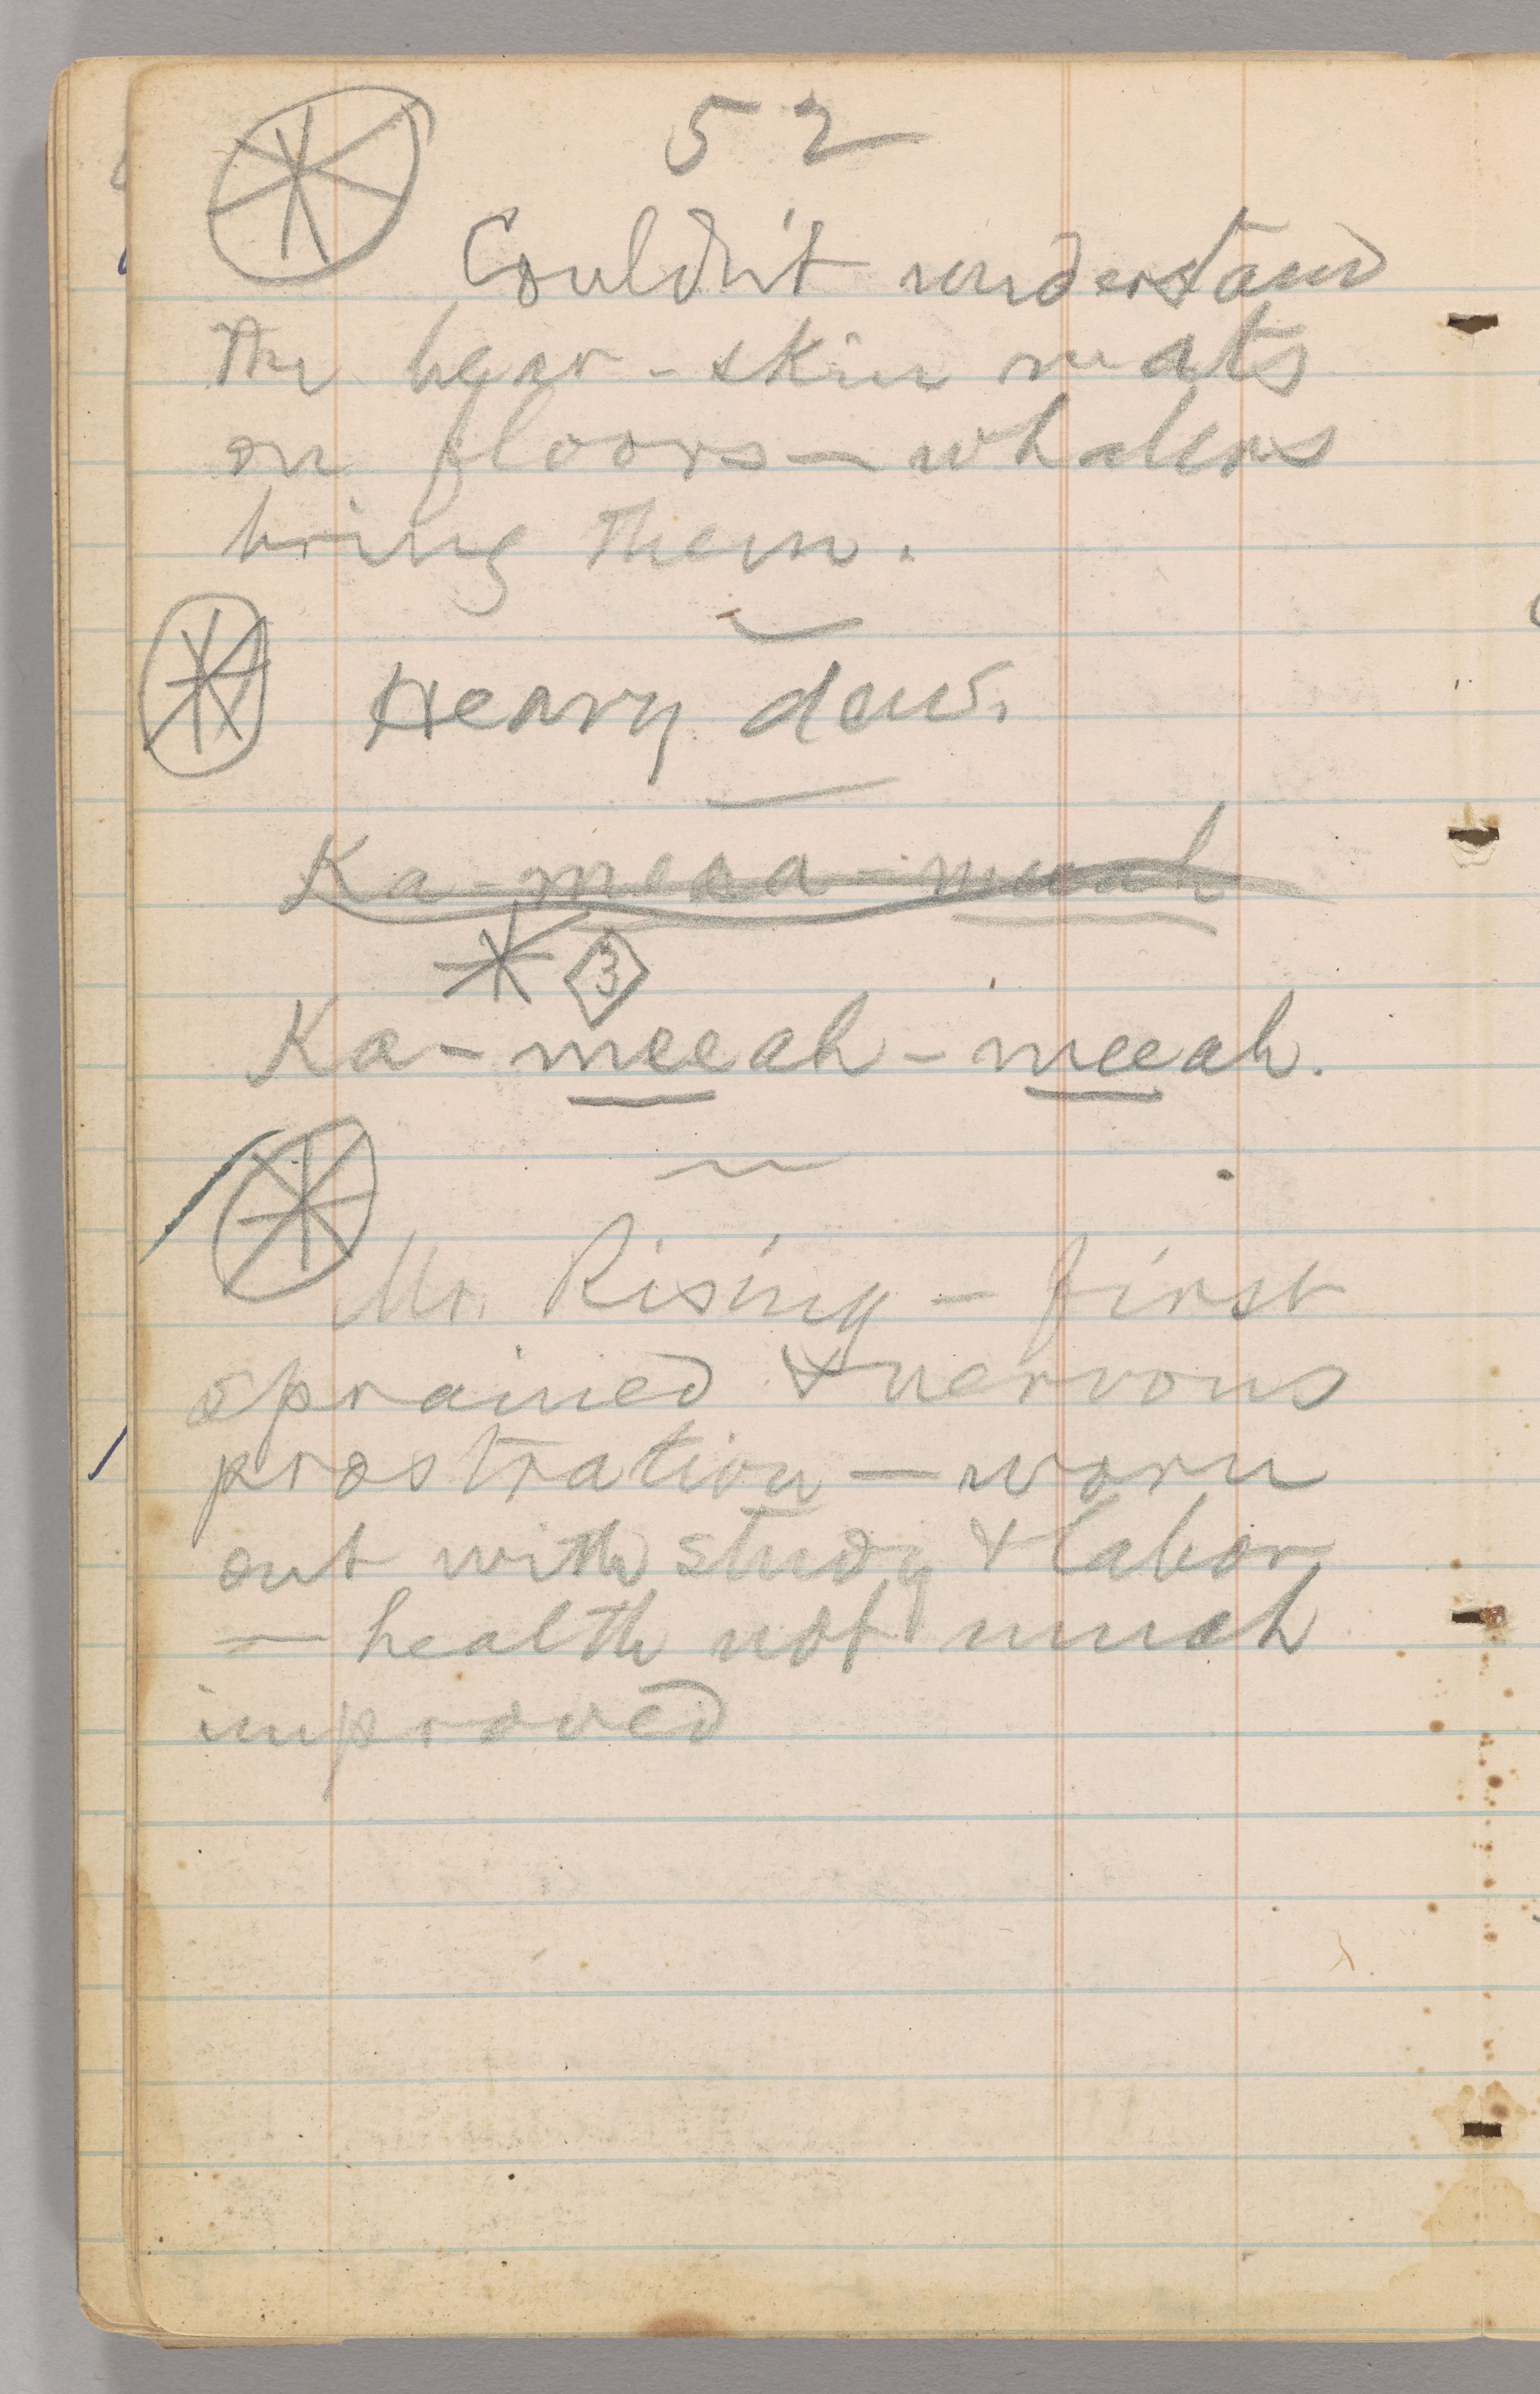 52
Couldn't understand
the bear-skin mats
on floors—whalers
bring them.
Heavy dew.
Ka-meea-meeah
3
Ka-meeah-meeah.
Mr. Rising—first
sprained & nervous
prostration—worn
out with study & labor
—health not much
improved